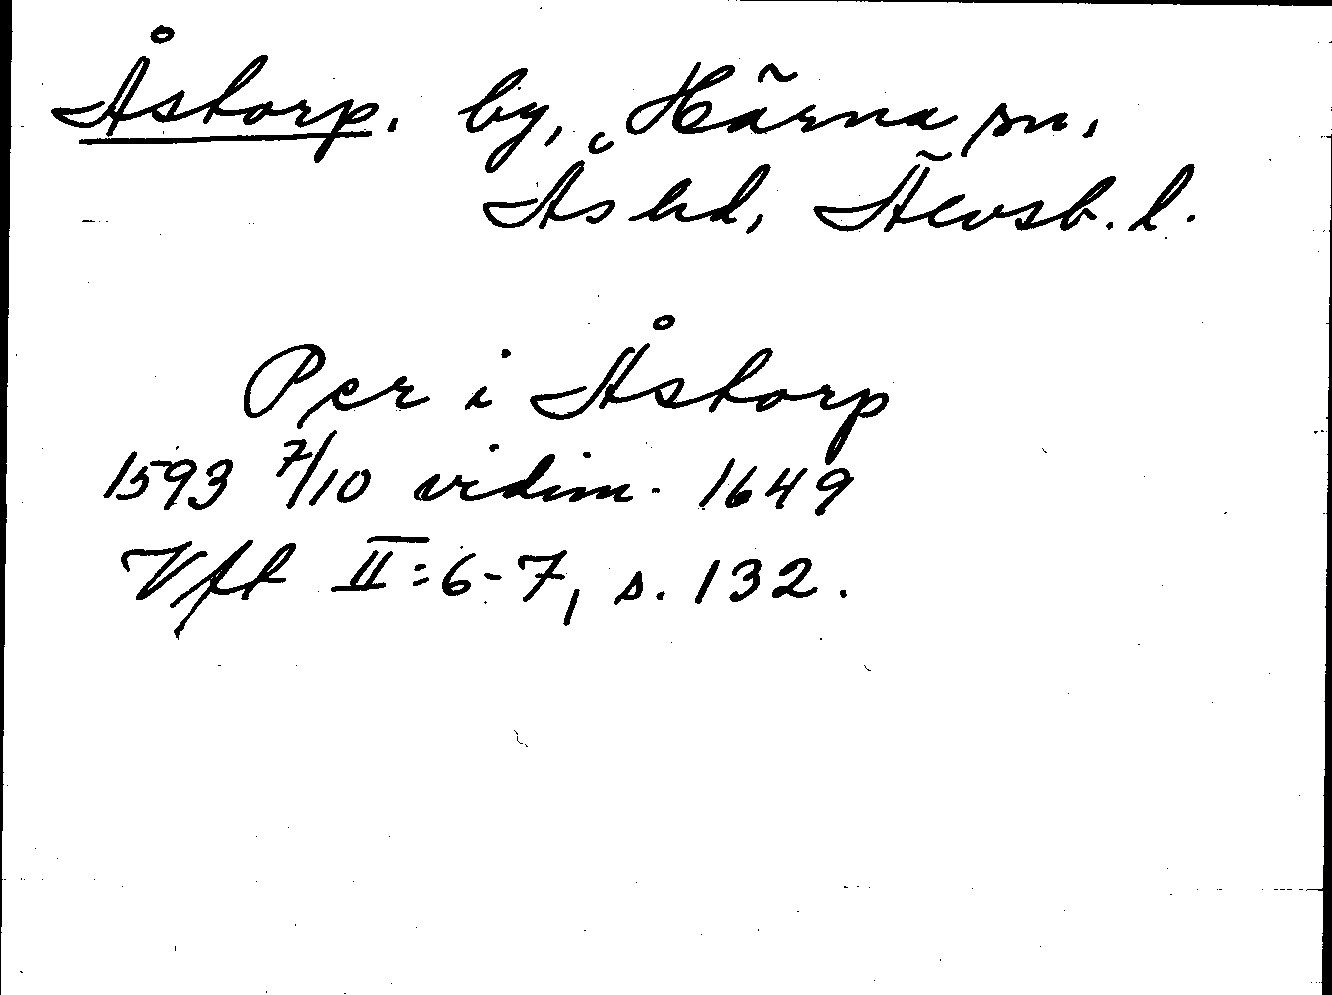 Åstorp. by, Härna sn,
Ås hd, Älvsb. l.
Per i Åstorp
1593 7/10 vidim. 1649
Vft II:6-7, s. 132.